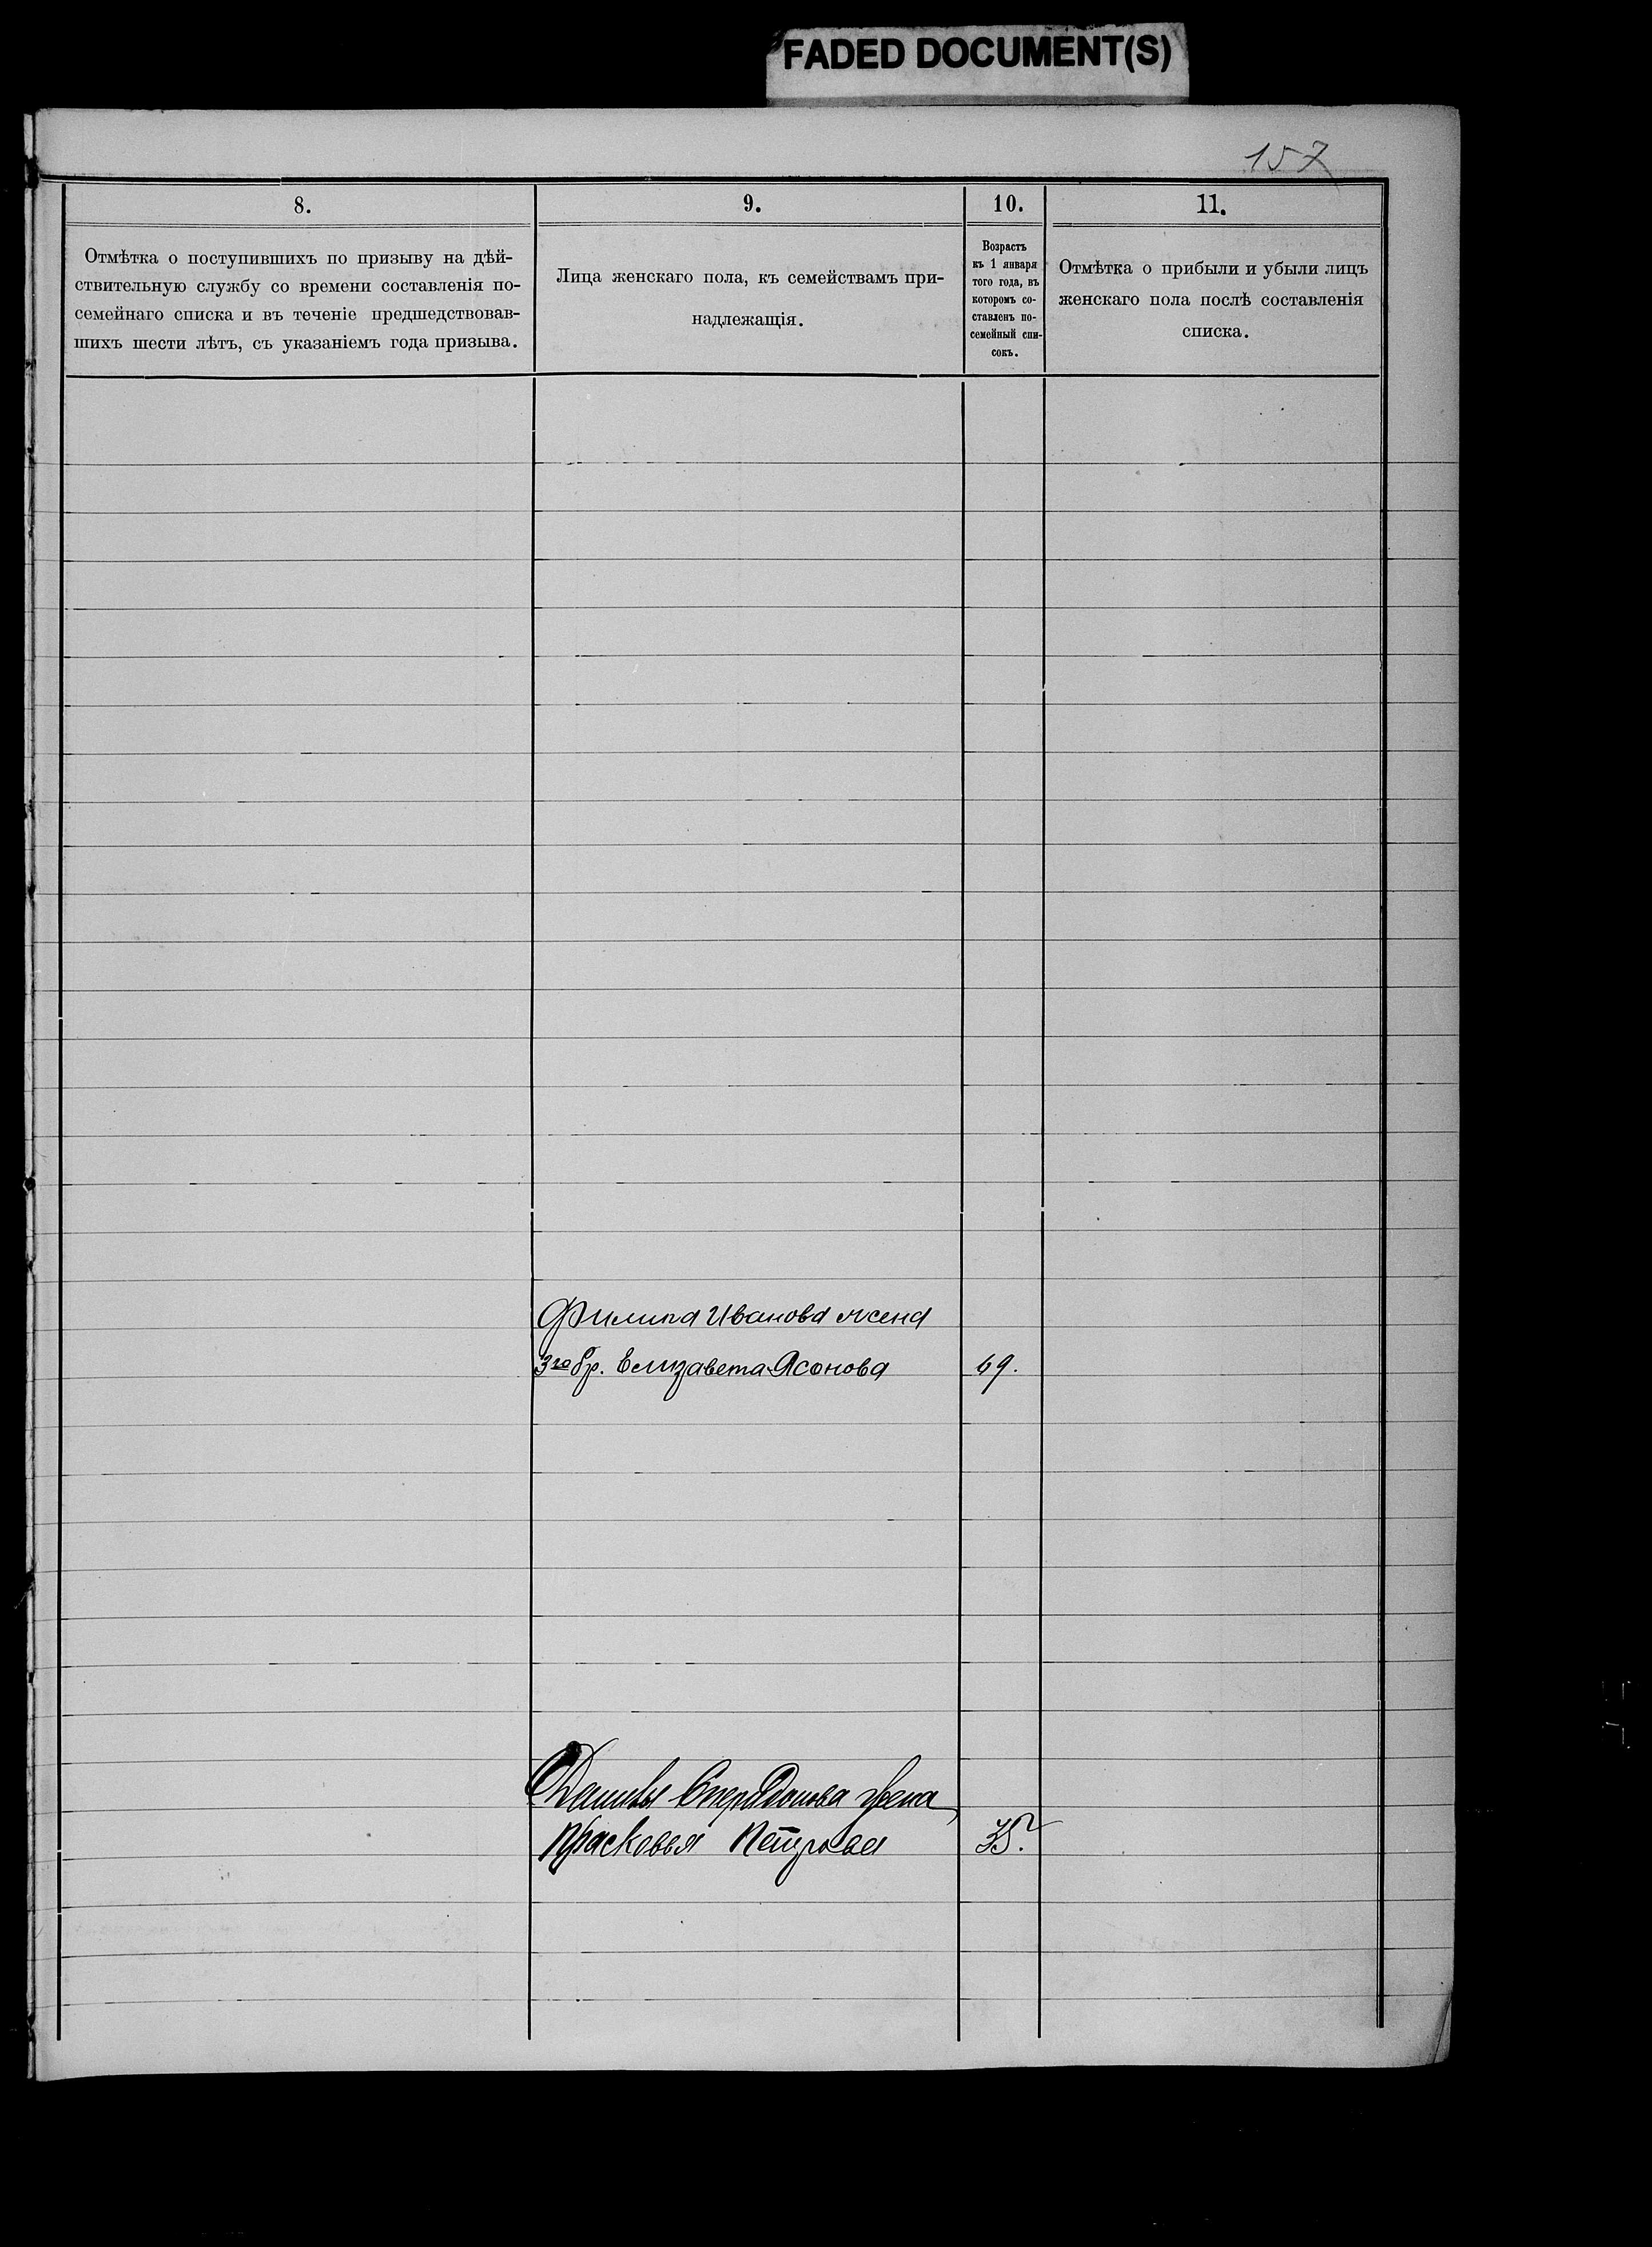 FADED DOCUMENT(S)
157
8.
Отмѣтка о поступившихъ по призыву на дѣй-
ствительную службу со времени составленія по-
семейнаго списка и въ теченіе предшедствовав-
шихъ шести лѣтъ, съ указаніемъ года призыва.
9.
Лица женскаго пола, къ семействамъ при-
надлежащія.
10.
Возрастъ
къ 1 января
того года, въ
которомъ со-
ставленъ по-
семейный спи-
сокъ.
11.
Отмѣтка о прибыли и убыли лицъ
женскаго пола послѣ составленія
списка.
Филипа Иванова жена
3го бр. Елизавета Ясонова 69.
Данилы Спиридонова жена
Прасковья Петрова 35.